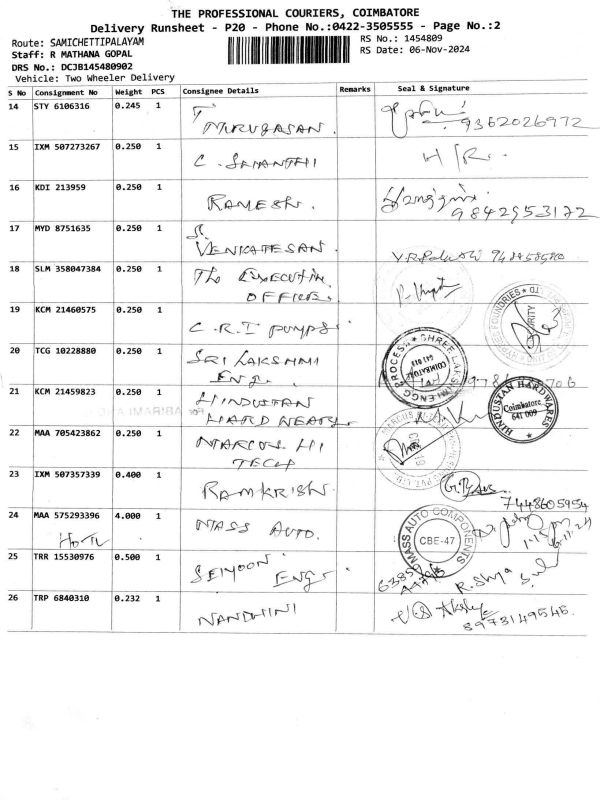 THE PROFESSIONAL COURIERS, COIMBATORE
Delivery Runsheet - P20 - Phone No.:0422-3505555 - Page No.:2
Route: SAMICHETTIPALAYAM
RS No.: 1454809
Staff: R MATHANA GOPAL
RS Date: 06-Nov-2024
DRS No.: DCJB145480902
Vehicle: Two Wheeler Delivery
S No Consignment No Weight PCS Consignee Details Remarks Seal & Signature
14 STY 6106316 0.245 1 T
MURUGASAN. 9362026972
15 IXM 507273267 0.250 1 C. SHANTHI H/R.
16 KDI 213959 0.250 1 RAMESH.
9842953172
17 MYD 8751635 0.250 1 S.
VENKATESAN.
18 SLM 358047384 0.250 1 The EXECUTIVE
OFFICER.
19 KCM 21460575 0.250 1 C.R.I PUMPS.
20 TCG 10228880 0.250 1 SRI LAKSHMI
ENG.
SHREE LAKSHMI ENGG PROCESS
COIMBATORE
21 KCM 21459823 0.250 1 HINDUSTAN
HARDWEARS.
HINDUSTAN HARDWARES
Coimbatore
641 009
22 MAA 705423862 0.250 1 MARCUS HI
TECH
23 IXM 507357339 0.400 1 RAMKRISH.
7448605954
24 MAA 575293396 4.000 1 MASS AUTO.
MASS AUTO COMPONENTS
CBE-47
6.11.24
25 TRR 15530976 0.500 1 SEIYOON
ENG.
26 TRP 6840310 0.232 1 NANDHINI
8973149545.